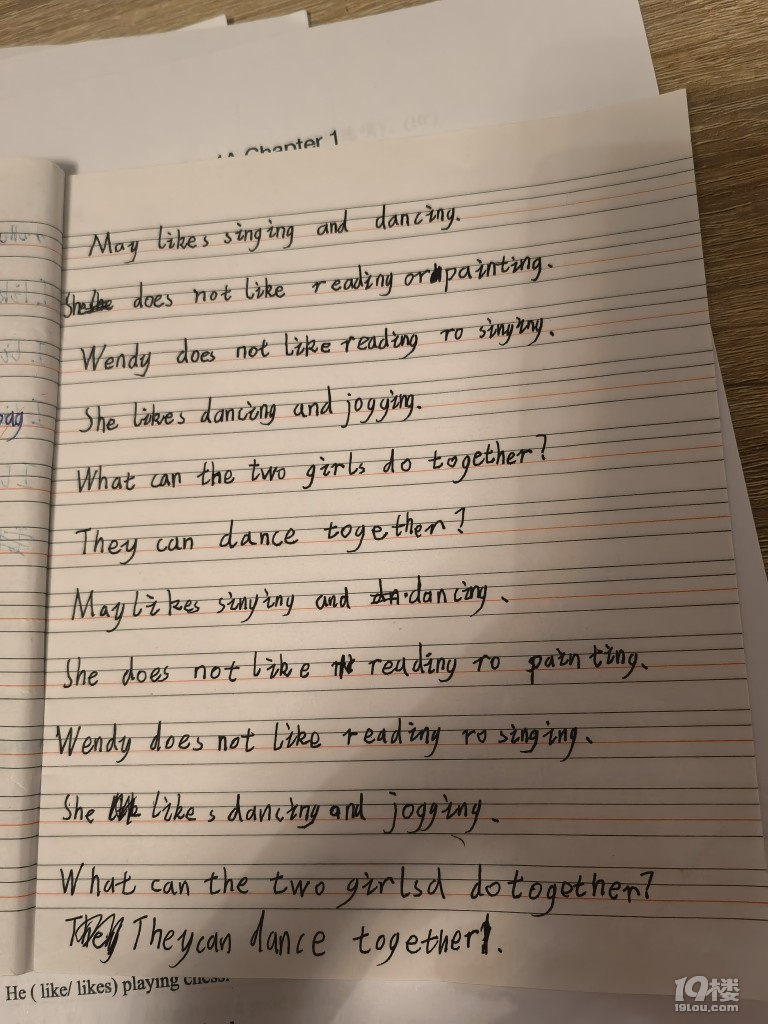 Chapter 1
May likes singing and dancing.
She does not like reading or painting.
Wendy does not like reading ro singing.
bag
She likes dancing and jogging.
What can the two girls do together?
They can dance together?
May likes singing and dancing.
She does not like reading ro painting.
Wendy does not like reading ro singing.
She likes dancing and jogging.
What can the two girlsd do together?
They can dance together.
He ( like/ likes) playing chess.
19楼
19lou.com